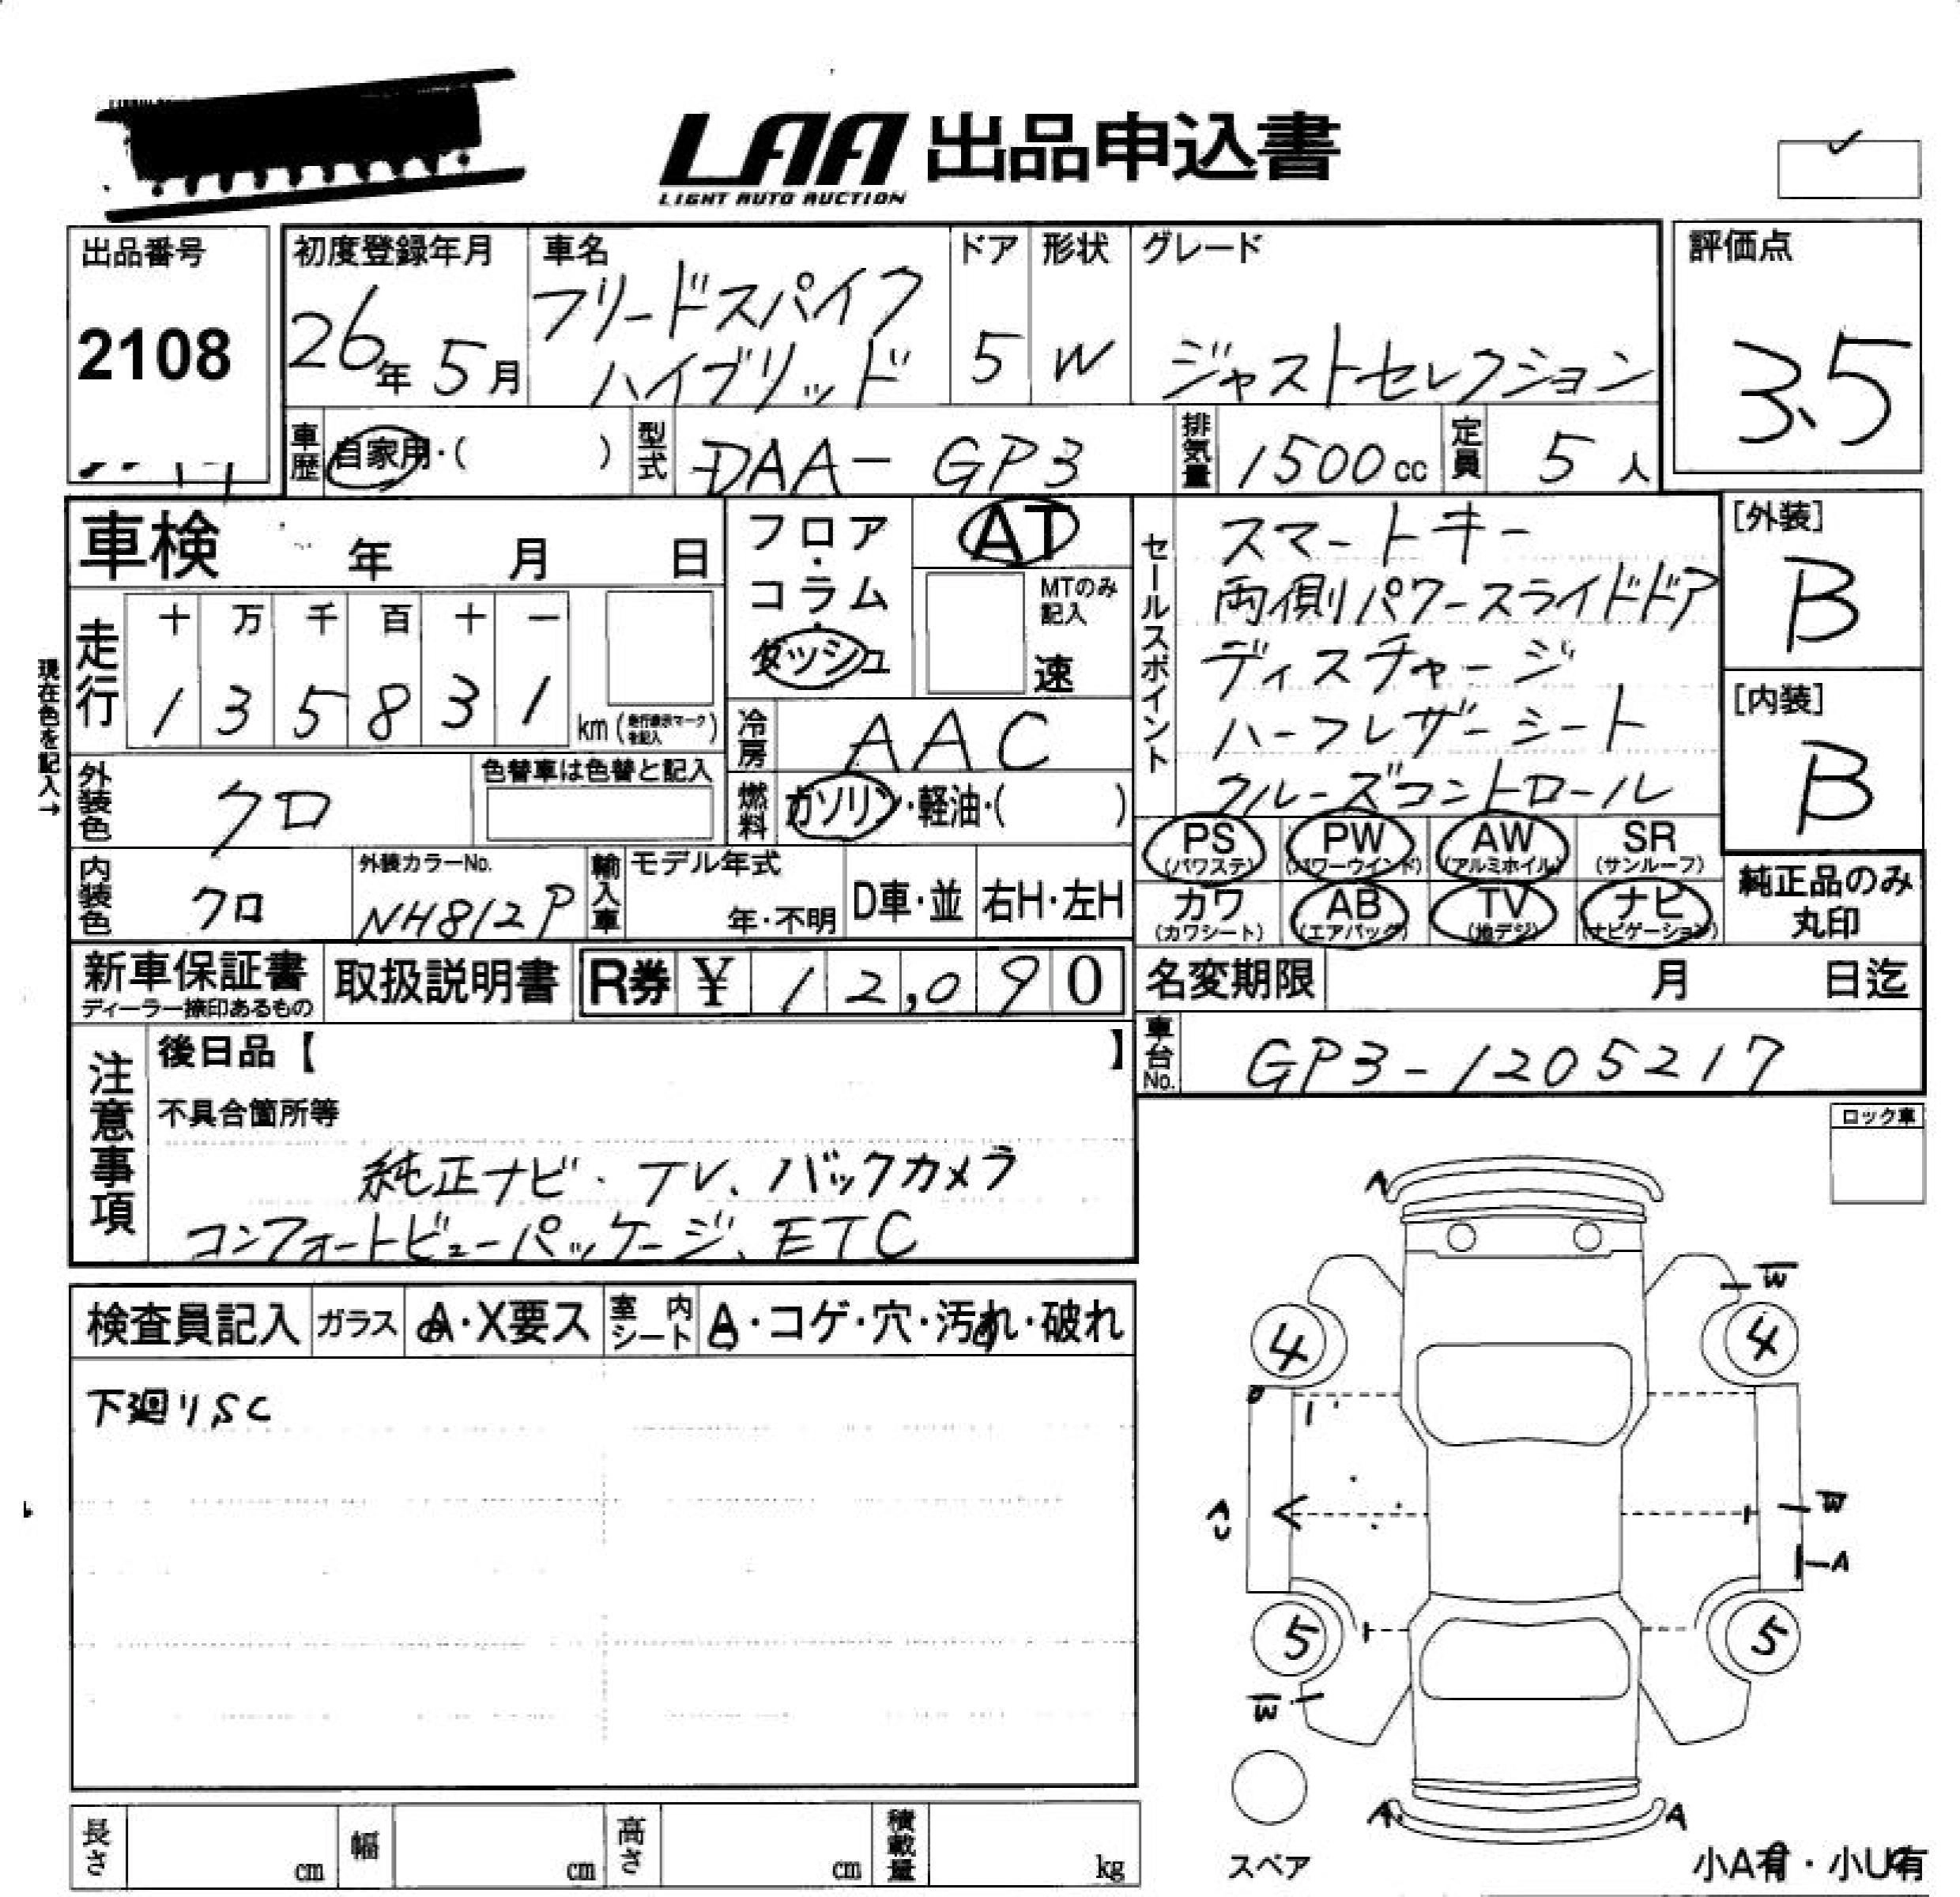 LAA 出品申込書
LIGHT AUTO AUCTION
出品番号
2108
初度登録年月
26年 5月
車名
フリードスパイク
ハイブリッド
ドア
5
形状
W
グレード
ジャストセレクション
評価点
3.5
車歴 自家用・( )
型式 DAA-GP3
排気量 1500cc
定員 5人
車検 年 月 日
フロア・コラム・ダッシュ
AT
MTのみ記入
速
セールスポイント
スマートキー
両側パワースライドドア
ディスチャージ
ハーフレザーシート
クルーズコントロール
[外装]
B
[内装]
B
現在色を記入→
走行
十 万 千 百 十 一
1 3 5 8 3 1 km (走行表示マークを記入)
冷房 AAC
外装色 クロ
色替車は色替と記入
燃料 ガソリン・軽油・( )
PS (パワステ)
PW (パワーウインド)
AW (アルミホイル)
SR (サンルーフ)
カワ (カワシート)
AB (エアバック)
TV (地デジ)
ナビ (ナビゲーション)
純正品のみ丸印
内装色 クロ
外装カラーNo.
NH812P
輸入車
モデル年式
年・不明
D車・並
右H・左H
新車保証書
ディーラー捺印あるもの
取扱説明書
R券 ¥ 12,090
名変期限 月 日迄
車台No. GP3-1205217
注意事項
後日品【 】
不具合箇所等
純正ナビ・TV、バックカメラ
コンフォートビューパッケージ、ETC
ロック車
検査員記入
ガラス A・X要ス
室内シート A・コゲ・穴・汚れ・破れ
下廻りSC
A
W
4
4
AU
W
A
5
5
W
A
A
スペア
小A有・小U有
長さ cm
幅 cm
高さ cm
積載量 kg